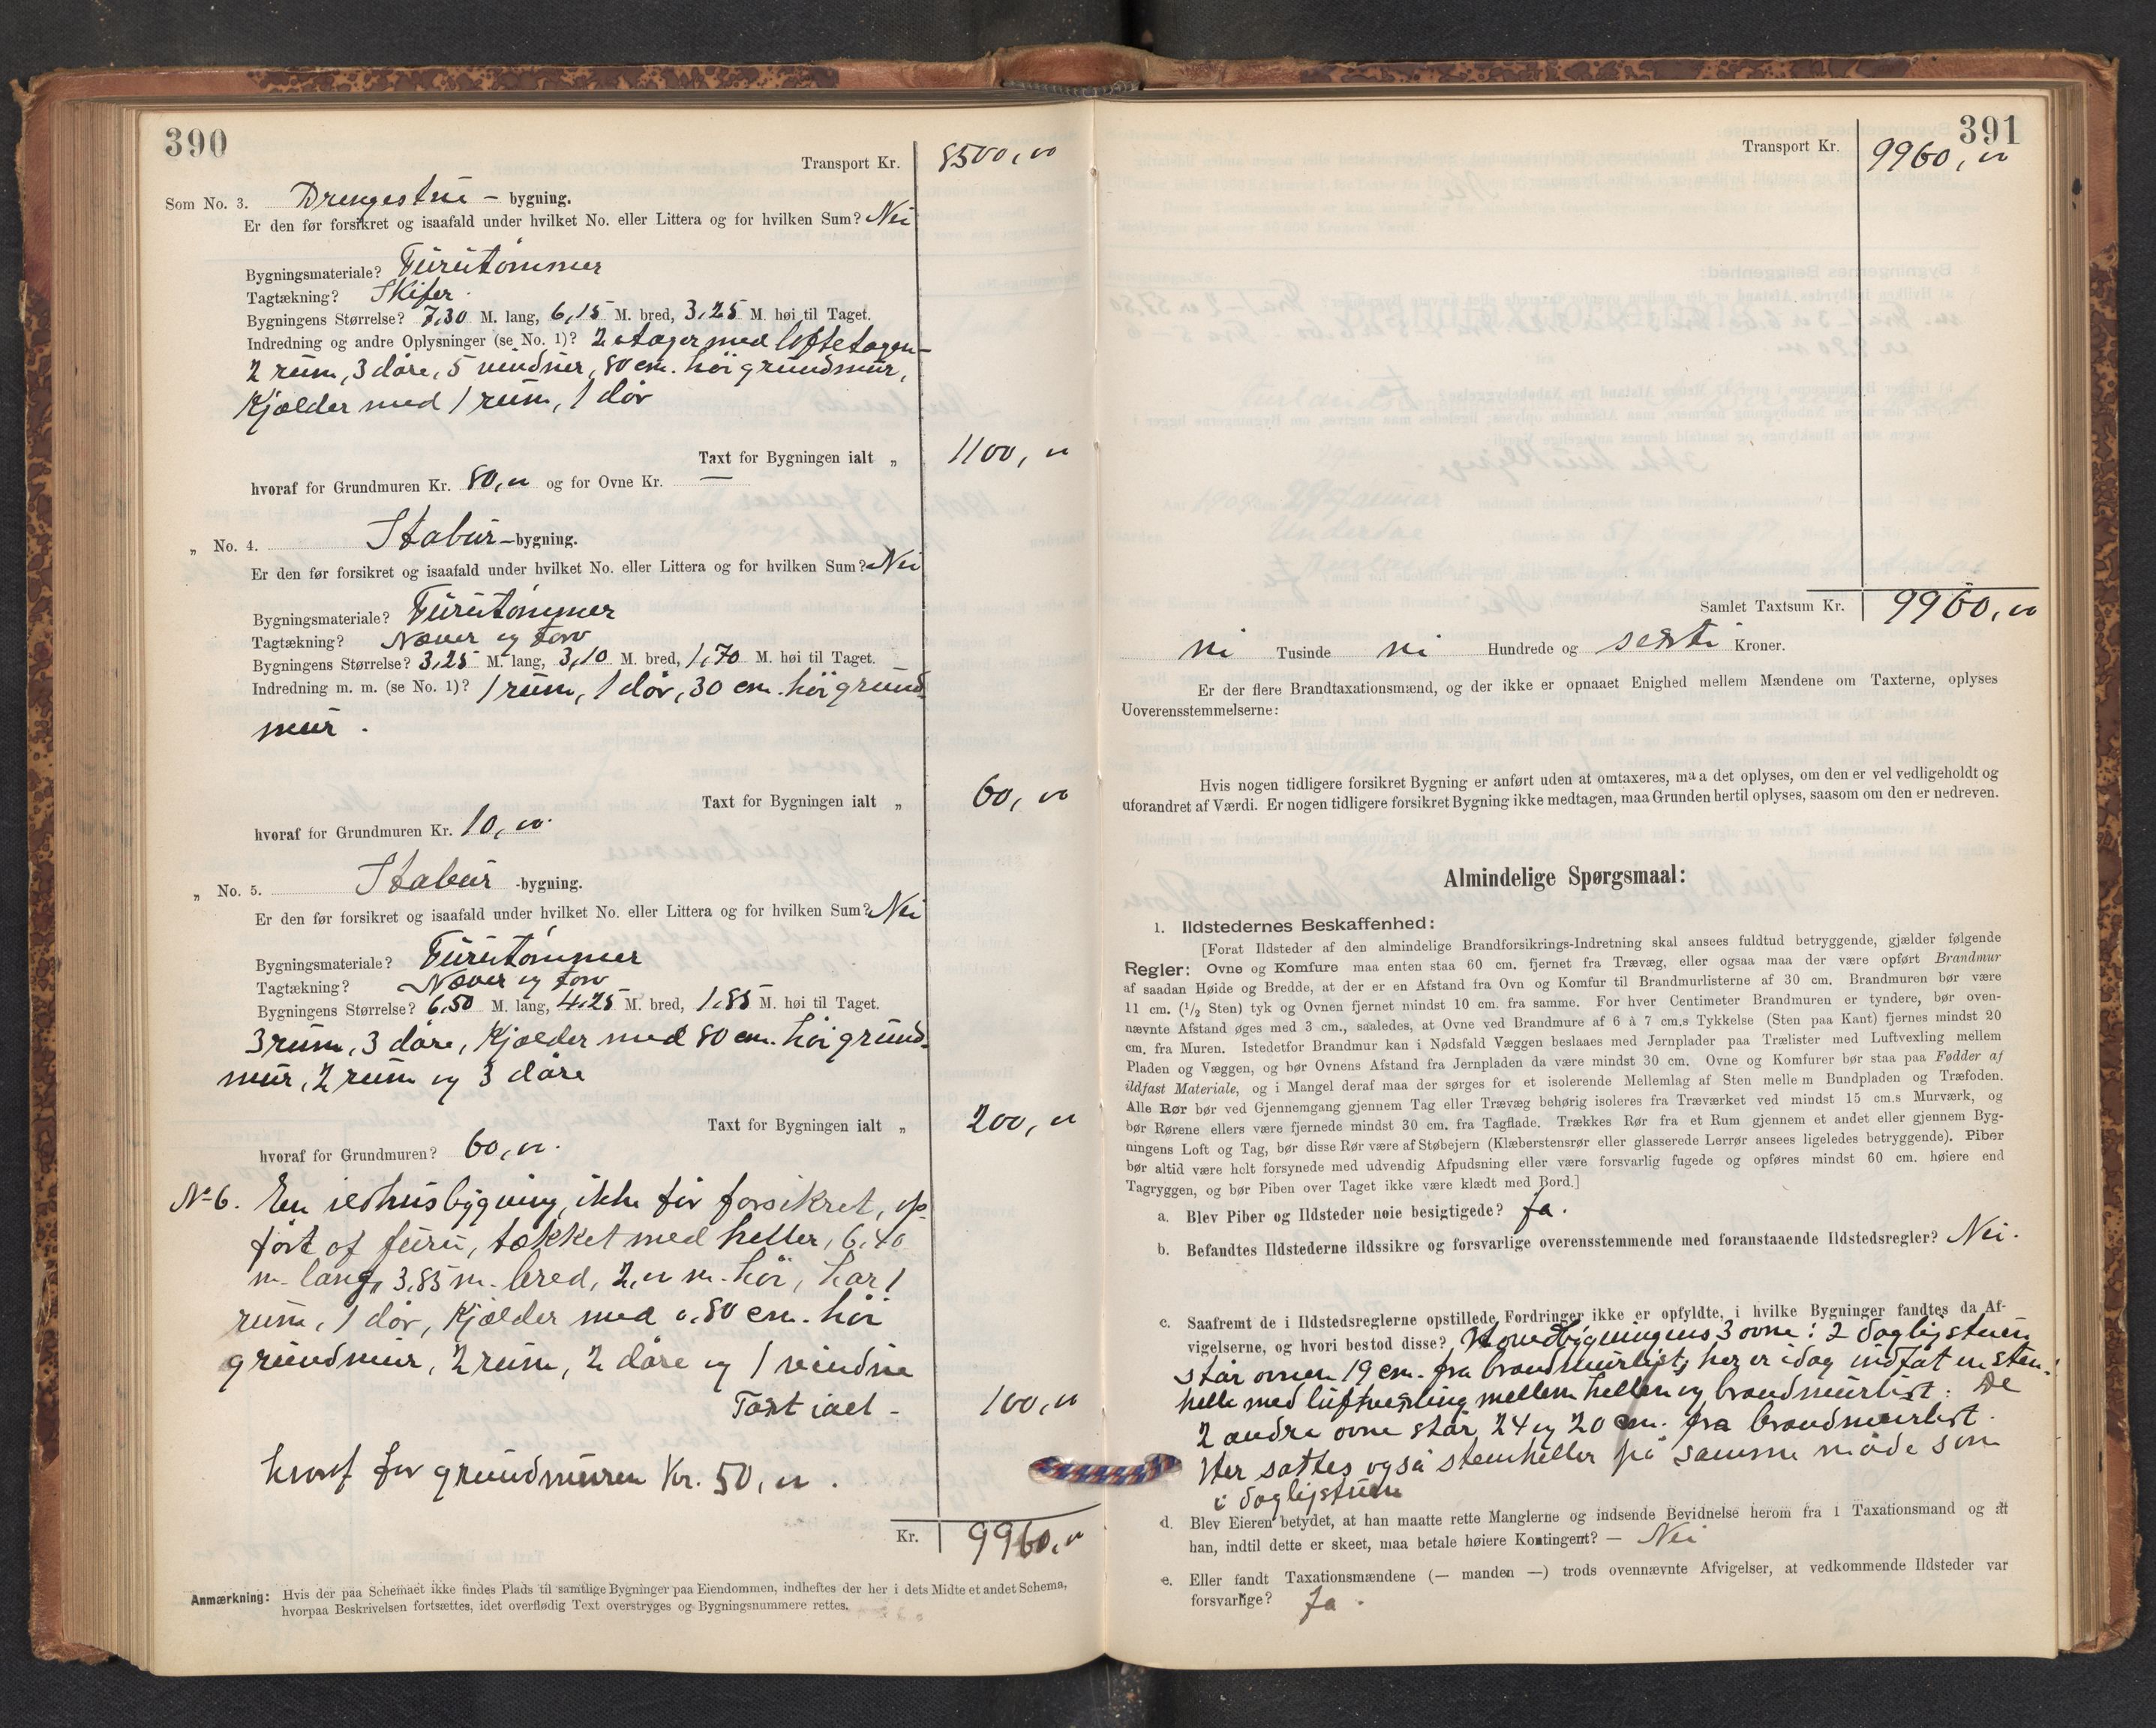 390
Transport Kr. 8500,00
Som No. 3. Drengestue – bygning.
Er den før forsikret og isaafald under hvilket No. eller Littera og for hvilken Sum? Nei
Bygningsmateriale? Furutømmer
Tagtækning? Skifer.
Bygningens Størrelse? 7,30 M. lang, 6,15 M. bred, 3,25 M. høi til Taget.
Indredning og andre Oplysninger (se No. 1)? 2 etager med loftetagen –
2 rum, 3 døre, 5 vinduer, 80 cm. høi grundmur,
Kjælder med 1 rum, 1 dør
Taxt for Bygningen ialt „ 1100,00
hvoraf for Grundmuren Kr. 80,00 og for Ovne Kr. —
„ No. 4. Stabur – bygning.
Er den før forsikret og isaafald under hvilket No. eller Littera og for hvilken Sum? Nei
Bygningsmateriale? Furutømmer
Tagtækning? Næver og torv
Bygningens Størrelse? 3,25 M. lang, 3,10 M. bred, 1,70 M. høi til Taget.
Indredning m. m. (se No. 1)? 1 rum, 1 dør, 30 cm. høi grund
mur.
Taxt for Bygningen ialt „ 60,00
hvoraf for Grundmuren Kr. 10,00.
„ No. 5. Stabur -bygning.
Er den før forsikret og isaafald under hvilket No. eller Littera og for hvilken Sum? Nei
Bygningsmateriale? Furutømmer
Tagtækning? Næver og torv
Bygningens Størrelse? 6,50 M. lang, 4,25 M. bred, 1,85 M. høi til Taget.
3 rum, 3 døre, Kjælder med 80 cm. høi grund-
mur, 2 rum og 3 døre
Taxt for Bygningen ialt „ 200,00
hvoraf for Grundmuren? 60,00.
No 6. En ildhusbygning, ikke før forsikret, op-
ført af furu, tækket med heller, 6,40
m. lang, 3,85 m. bred, 2,00 m. høi, har 1
rum, 1 dør, Kjælder med 0,80 cm. høi
grundmur, 2 rum, 2 døre og 1 vindue
Taxt ialt – 100,00
hvoraf for grundmuren Kr. 50,00.
Kr. 9960,00
Anmærkning: Hvis der paa Schemaet ikke findes Plads til samtlige Bygninger paa Eiendommen, indheftes der her i dets Midte et andet Schema,
hvorpaa Beskrivelsen fortsættes, idet overflødig Text overstryges og Bygningsnummere rettes.
391
Transport Kr. 9960,00
Samlet Taxtsum Kr. 9960,00
ni Tusinde ni Hundrede og sexti Kroner.
Er der flere Brandtaxationsmænd, og der ikke er opnaaet Enighed mellem Mændene om Taxterne, oplyses
Uoverensstemmelserne:
Hvis nogen tidligere forsikret Bygning er anført uden at omtaxeres, maa det oplyses, om den er vel vedligeholdt og
uforandret af Værdi. Er nogen tidligere forsikret Bygning ikke medtagen, maa Grunden hertil oplyses, saasom om den er nedreven.
Almindelige Spørgsmaal:
1. Ildstedernes Beskaffenhed:
[Forat Ildsteder af den almindelige Brandforsikrings-Indretning skal ansees fuldtud betryggende, gjælder følgende
Regler: Ovne og Komfure maa enten staa 60 cm. fjernet fra Trævæg, eller ogsaa maa der være opført Brandmur
af saadan Høide og Bredde, at der er en Afstand fra Ovn og Komfur til Brandmurlisterne af 30 cm. Brandmuren bør være
11 cm. (1/2 Sten) tyk og Ovnen fjernet mindst 10 cm. fra samme. For hver Centimeter Brandmuren er tyndere, bør oven-
nævnte Afstand øges med 3 cm., saaledes, at Ovne ved Brandmure af 6 à 7 cm.s Tykkelse (Sten paa Kant) fjernes mindst 20
cm. fra Muren. Istedetfor Brandmur kan i Nødsfald Væggen beslaaes med Jernplader paa Trælister med Luftvexling mellem
Pladen og Væggen, og bør Ovnens Afstand fra Jernpladen da være mindst 30 cm. Ovne og Komfurer bør staa paa Fødder af
ildfast Materiale, og i Mangel deraf maa der sørges for et isolerende Mellemlag af Sten mellem Bundpladen og Træfoden.
Alle Rør bør ved Gjennemgang gjennem Tag eller Trævæg behørig isoleres fra Træverket ved mindst 15 cm.s Murværk, og
bør Rørene ellers være fjernede mindst 30 cm. fra Tagflade. Trækkes Rør fra et Rum gjennem et andet eller gjennem Byg-
ningens Loft og Tag, bør disse Rør være af Støbejern (Klæberstensrør eller glasserede Lerrør ansees ligeledes betryggende). Piber
bør altid være helt forsynede med udvendig Afpudsning eller være forsvarlig fugede og opføres mindst 60 cm. høiere end
Tagryggen, og bør Piben over Taget ikke være klædt med Bord.]
a. Blev Piber og Ildsteder nøie besigtigede? Ja.
b. Befandtes Ildstederne ildssikre og forsvarlige overensstemmende med foranstaaende Ildstedsregler? Nei.
c. Saafremt de i Ildstedsreglerne opstillede Fordringer ikke er opfyldte, i hvilke Bygninger fandtes da Af-
vigelserne, og hvori bestod disse? Hovedbygningens 3 ovne: I dagligstuen
står ovnen 19 cm. fra brandmurlist, her er idag indsat en sten-
helle med luftvexling mellem hellen og brandmurlist. De
2 andre ovne står 24 og 20 cm. fra brandmurlist.
Her sættes også stenheller på samme måde som
i dagligstuen
d. Blev Eieren betydet, at han maatte rette Manglerne og indsende Bevidnelse herom fra 1 Taxationsmand og at
han, indtil dette er skeet, maa betale høiere Kontingent? – Nei
e. Eller fandt Taxationsmændene (— manden —) trods ovennævnte Afvigelser, at vedkommende Ildsteder var
forsvarlige? Ja.